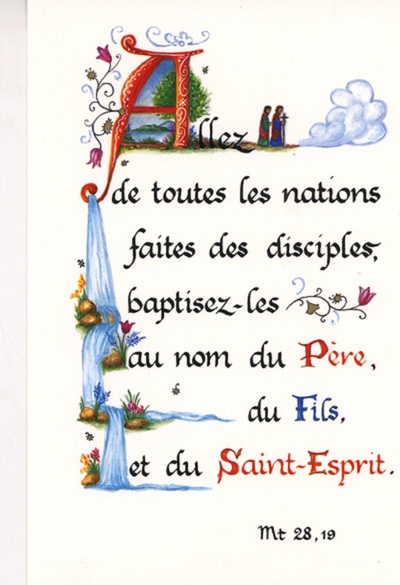 Allez
de toutes les nations
faites des disciples,
baptisez-les
au nom du Père,
du Fils,
et du Saint-Esprit.
Mt 28,19